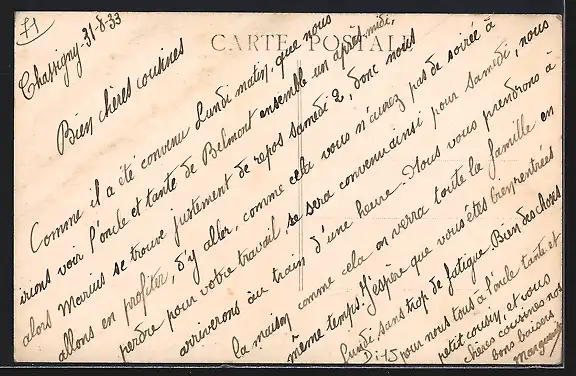 71
CARTE POSTALE
Chassigny - 31-8-33
Bien chères cousines
Comme il a été convenu Lundi matin, que nous
irions voir l'oncle et tante de Belmont ensemble un après-midi,
alors Marius se trouve justement de repos samedi 2, donc nous
allons en profiter, d'y aller, comme cela vous n'aurez pas de soirée à
perdre pour votre travail, se sera convenu ainsi pour samedi, nous
arriverons au train d'une heure. Nous vous prendrons à
la maison comme cela on verra toute la famille en
même temps. J'espère que vous êtes bien rentrées
Lundi, sans trop de fatigue. Bien des choses
pour nous tous à l'oncle tante et
petit cousin, et vous
chères cousines nos
bons baisers
Marguerite